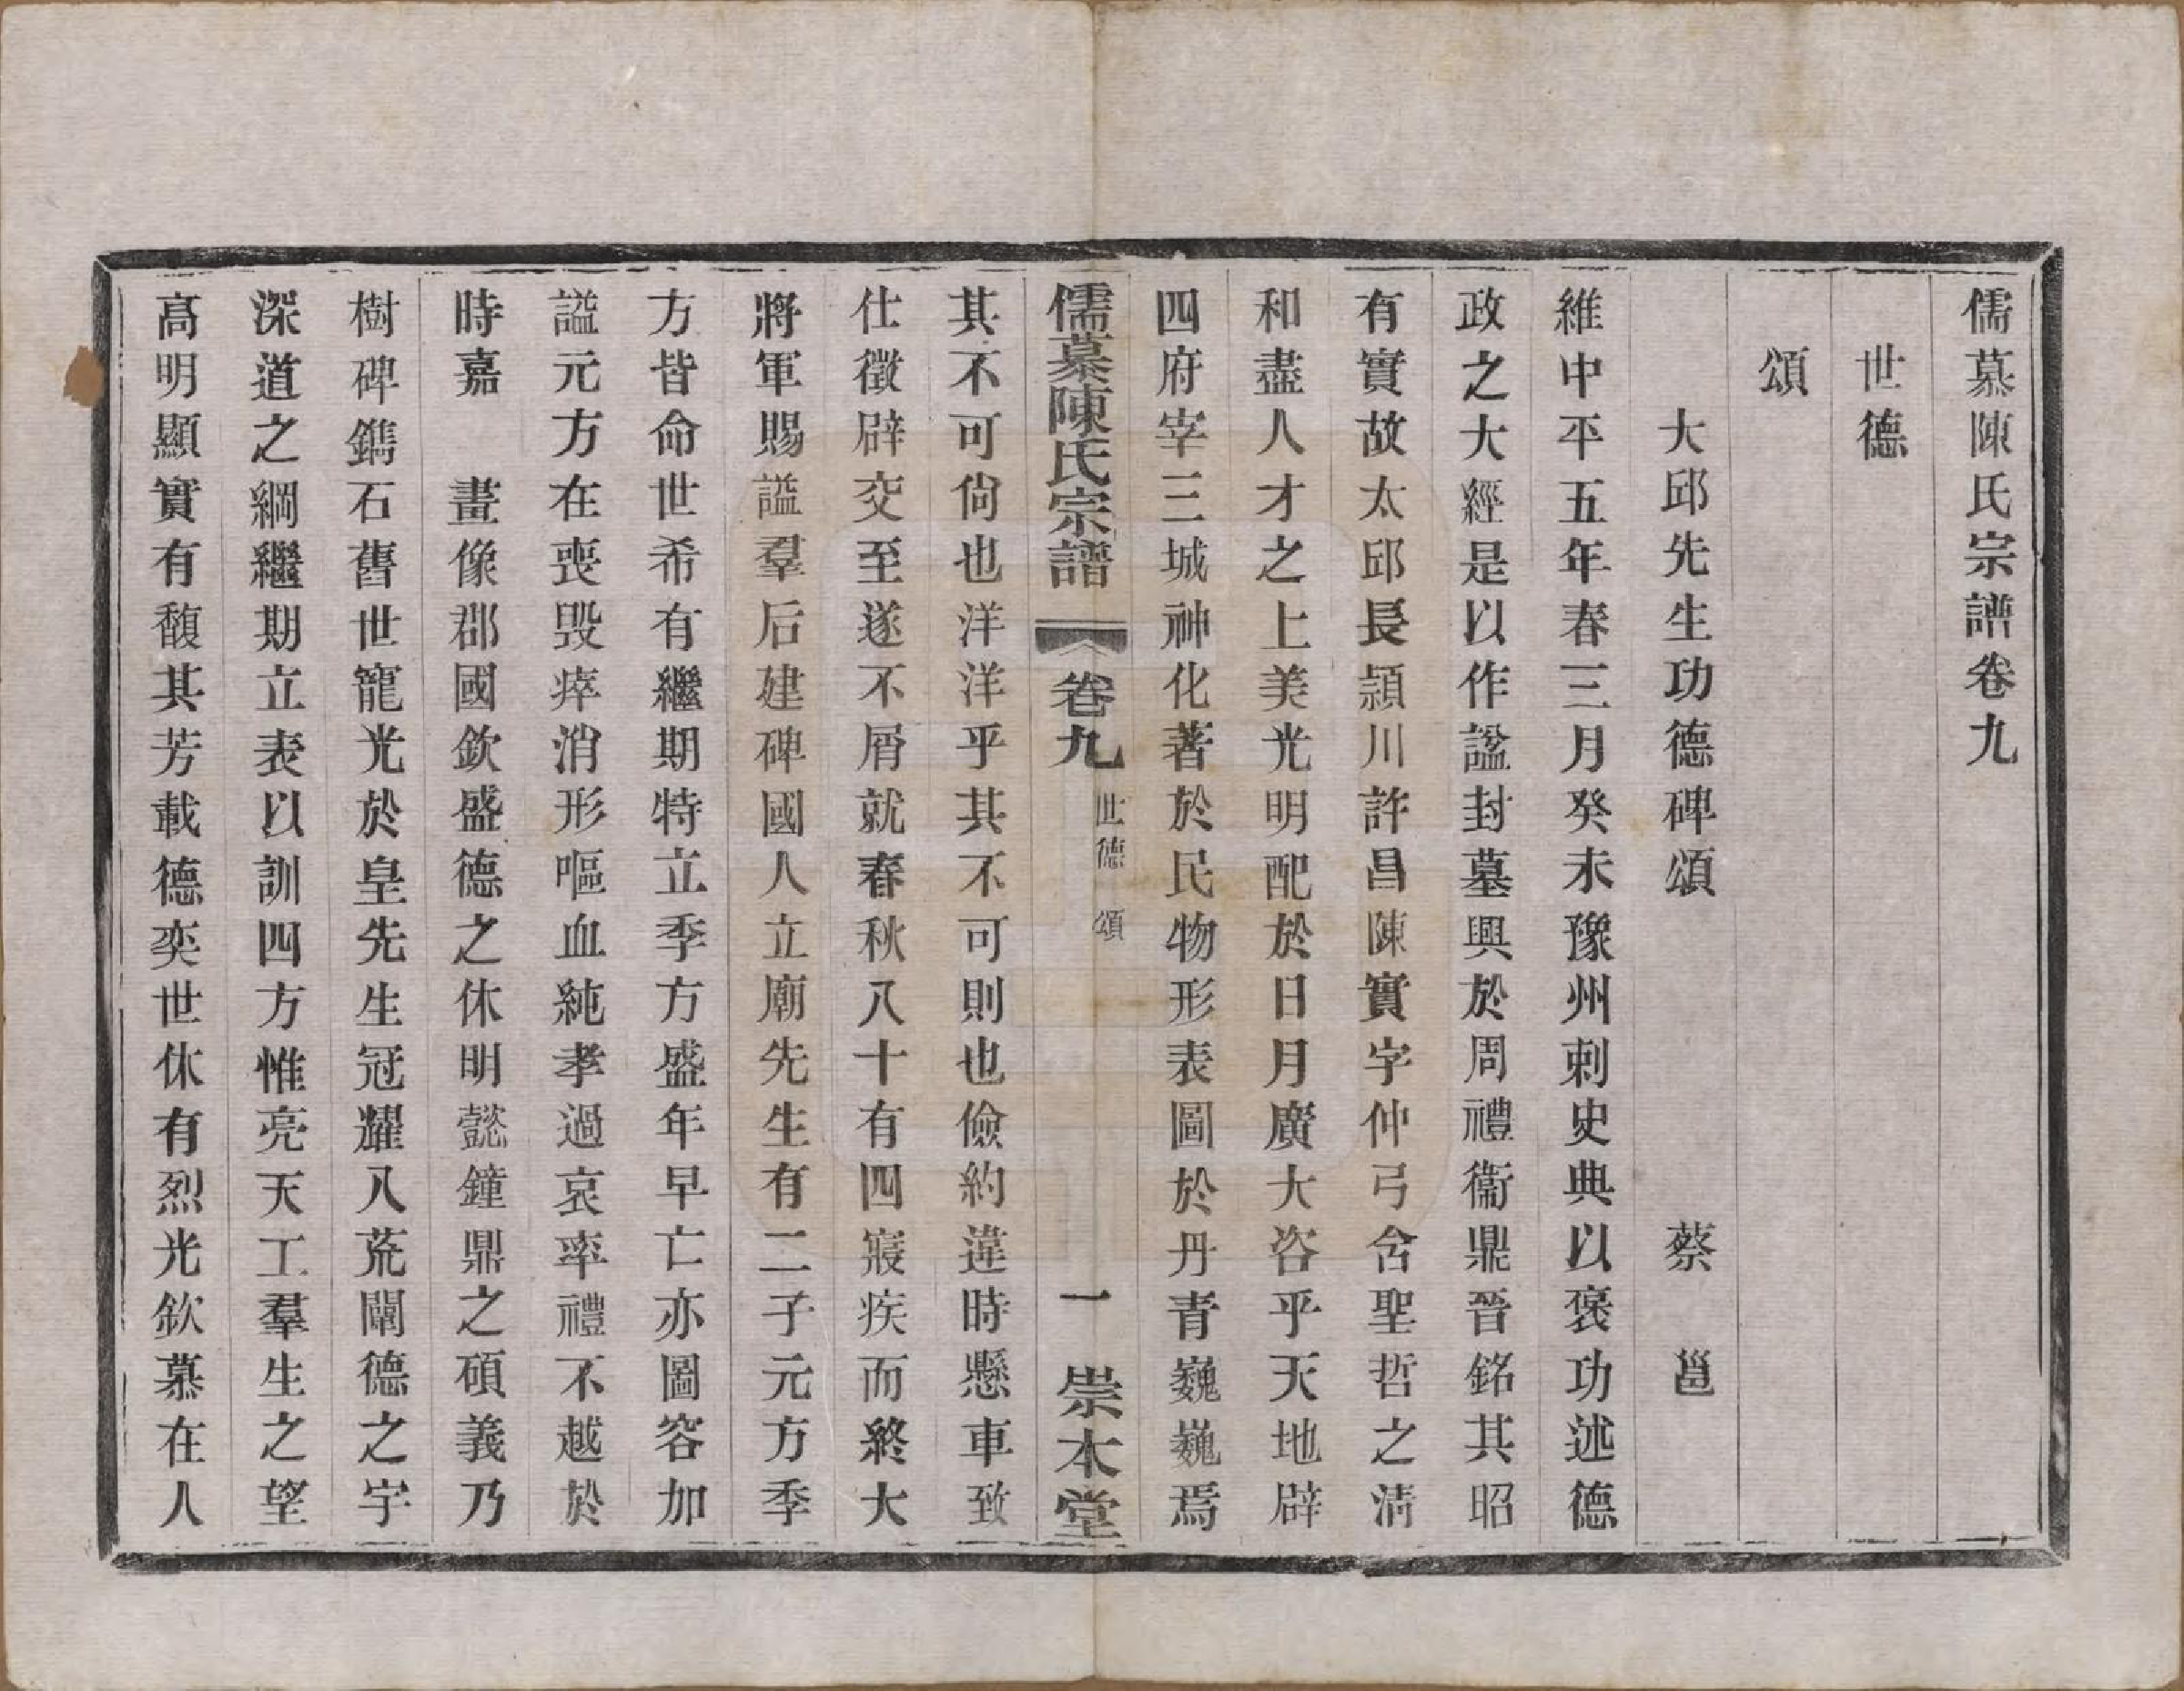 儒慕陳氏宗譜卷九
世德
頌
大邱先生功德碑頌 蔡邕
維中平五年春三月癸未豫州刺史典以褒功述德
政之大經是以作諡封墓興於周禮衞鼎晉銘其昭
有實故太邱長潁川許昌陳實字仲弓含聖哲之淸
和盡人才之上美光明配於日月廣大咨乎天地辟
四府宰三城神化著於民物形表圖於丹青巍巍焉
儒慕陳氏宗譜 卷九 世德 頌 一 崇本堂
其不可尙也洋洋乎其不可則也儉約違時懸車致
仕徵辟交至遂不屑就春秋八十有四寢疾而終大
將軍賜諡羣后建碑國人立廟先生有二子元方季
方皆命世希有繼期特立季方盛年早亡亦圖容加
諡元方在喪毀瘁消形嘔血純孝過哀率禮不越於
時嘉 畫像郡國欽盛德之休明懿鐘鼎之碩義乃
樹碑鐫石舊世寵光於皇先生冠耀八荒闡德之宇
深道之綱繼期立表以訓四方惟亮天工羣生之望
高明顯實有馥其芳載德奕世休有烈光欽慕在人